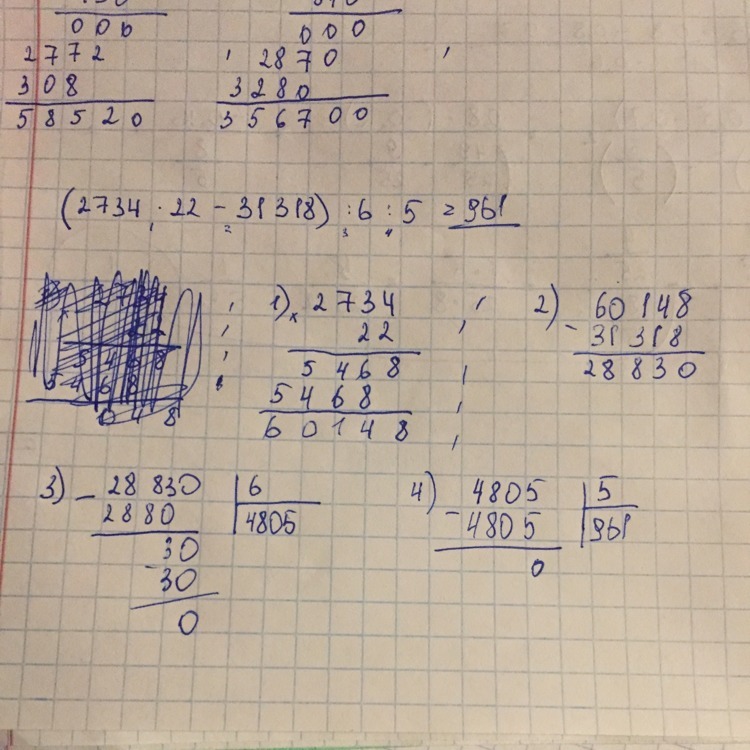 0 0 0
2 7 7 2
3 0 8
5 8 5 2 0
0 0 0
2 8 7 0
3 2 8 0
3 5 6 7 0 0
(2734 · 22 - 31318) : 6 : 5 = 961
1 2 3 4
1) × 2734
22
5468
5468
60148
2) 60148
- 31318
28830
3) - 28830 | 6
2880 | 4805
30
- 30
0
4) 4805 | 5
- 4805 | 961
0